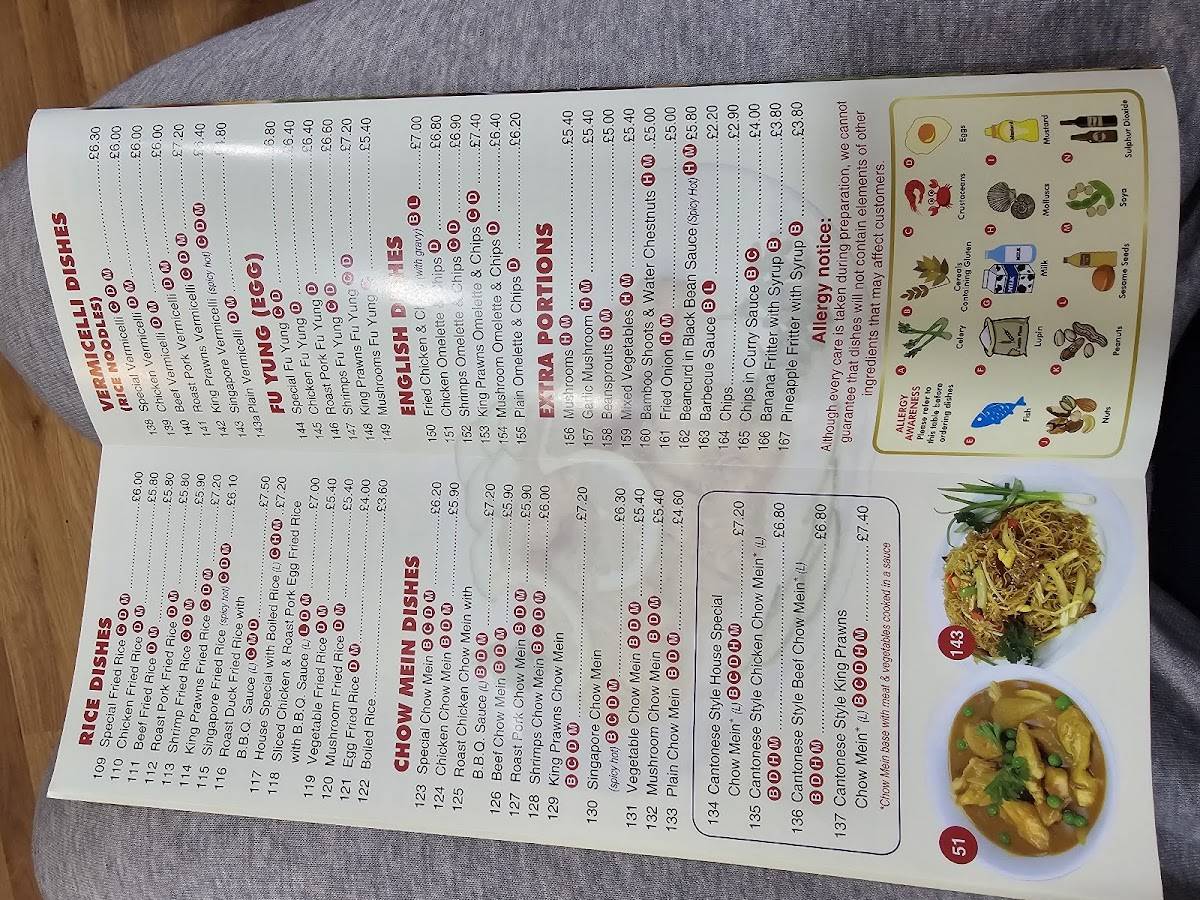 RICE DISHES
109 Special Fried Rice C D M £6.00
110 Chicken Fried Rice D M £5.80
111 Beef Fried Rice D M £5.80
112 Roast Pork Fried Rice D M £5.80
113 Shrimp Fried Rice C D M £5.90
114 King Prawns Fried Rice C D M £7.20
115 Singapore Fried Rice (spicy hot) C D M £6.10
116 Roast Duck Fried Rice with
B.B.Q. Sauce (L) C M D £7.50
117 House Special with Boiled Rice (L) C H M £7.20
118 Sliced Chicken & Roast Pork Egg Fried Rice
with B.B.Q. Sauce (L) L D M £7.00
119 Vegetable Fried Rice D M £5.40
120 Mushroom Fried Rice D M £5.40
121 Egg Fried Rice D M £4.00
122 Boiled Rice £3.60
CHOW MEIN DISHES
123 Special Chow Mein B C D M £6.20
124 Chicken Chow Mein B D M £5.90
125 Roast Chicken Chow Mein with
B.B.Q. Sauce (L) B D M £7.20
126 Beef Chow Mein B D M £5.90
127 Roast Pork Chow Mein B D M £5.90
128 Shrimps Chow Mein B C D M £6.00
129 King Prawns Chow Mein
B C D M £7.20
130 Singapore Chow Mein
(spicy hot) B C D M £6.30
131 Vegetable Chow Mein B D M £5.40
132 Mushroom Chow Mein B D M
133 Plain Chow Mein B D M £4.60
134 Cantonese Style House Special
Chow Mein* (L) B C D H M £7.20
135 Cantonese Style Chicken Chow Mein* (L)
B D H M £6.80
136 Cantonese Style Beef Chow Mein* (L)
B D H M £6.80
137 Cantonese Style King Prawns
Chow Mein* (L) B C D H M £7.40
*Chow Mein base with meat & vegetables cooked in a sauce
51
143
VERMICELLI DISHES
(RICE NOODLES)
138 Special Vermicelli C D M £6.30
139 Chicken Vermicelli D M £6.00
140 Beef Vermicelli D M £6.00
141 Roast Pork Vermicelli D M £6.00
142 King Prawns Vermicelli C D M £7.20
143 Singapore Vermicelli (spicy hot) C D M
143a Plain Vermicelli D M
FU YUNG (EGG)
144 Special Fu Yung C D
145 Chicken Fu Yung D
146 Roast Pork Fu Yung D
147 Shrimps Fu Yung C D £6.60
148 King Prawns Fu Yung C D £7.20
149 Mushrooms Fu Yung £5.40
ENGLISH DISHES
150 Fried Chicken & Chips (with gravy) B L £7.00
151 Chicken Omelette & Chips D £6.80
152 Shrimps Omelette & Chips C D £6.90
153 King Prawns Omelette & Chips C D £7.40
154 Mushroom Omelette & Chips D £6.40
155 Plain Omelette & Chips D £6.20
EXTRA PORTIONS
156 Mushrooms H M £5.40
157 Garlic Mushroom H M £5.40
158 Beansprouts H M £5.00
159 Mixed Vegetables H M £5.40
160 Bamboo Shoots & Water Chestnuts H M £5.00
161 Fried Onion H M £5.00
162 Beancurd in Black Bean Sauce (Spicy Hot) H M £5.80
163 Barbecue Sauce B L £2.20
164 Chips £2.90
165 Chips in Curry Sauce B C £4.00
166 Banana Fritter with Syrup B £3.80
167 Pineapple Fritter with Syrup B £3.80
Allergy notice:
Although every care is taken during preparation, we cannot
guarantee that dishes will not contain elements of other
ingredients that may affect customers.
ALLERGY
AWARENESS
Please refer to
this table before
ordering dishes
A Celery
B Cereals Containing Gluten
C Crustaceans
D Eggs
E Fish
F Lupin
G Milk
H Mollusca
I Mustard
J Nuts
K Peanuts
L Sesame Seeds
M Soya
N Sulphur Dioxide